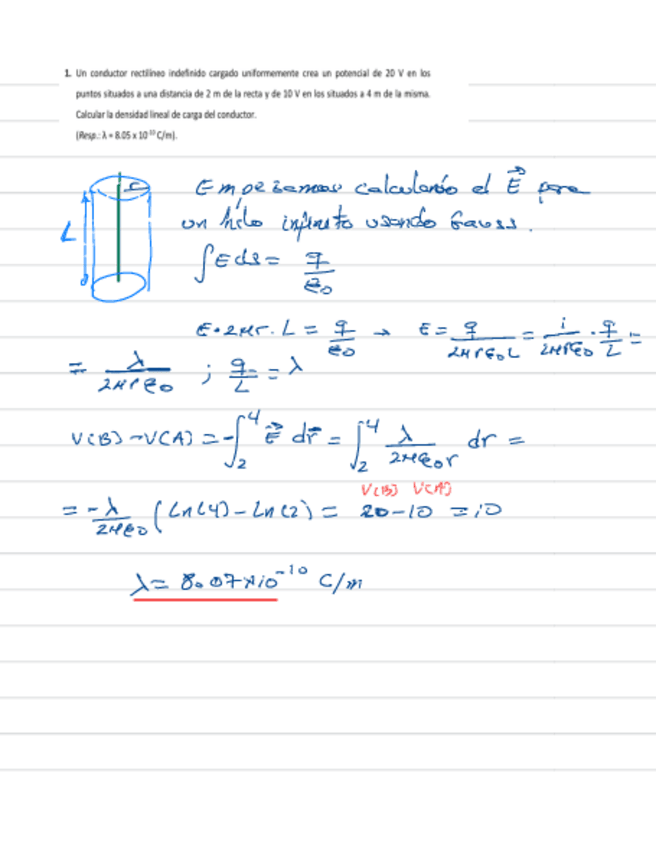 1. Un conductor rectilíneo indefinido cargado uniformemente crea un potencial de 20 V en los
puntos situados a una distancia de 2 m de la recta y de 10 V en los situados a 4 m de la misma.
Calcular la densidad lineal de carga del conductor.
(Resp.: λ = 8.05 x 10⁻¹⁰ C/m).
r
L
Empezamos calculando el E⃗ para
un hilo infinito usando Gauss.
∫Eds = q/ε₀
E·2πr·L = q/ε₀ → E = q/2πrε₀L = 1/2πrε₀ · q/L =
= λ/2πrε₀ ; q/L = λ
V(B)-V(A) = -∫₂⁴ E⃗ dr⃗ = ∫₂⁴ λ/2πε₀r dr =
V(B) V(A)
= -λ/2πε₀ (Ln(4)-Ln(2) = 20-10 = 10
λ = 8.07×10⁻¹⁰ C/m